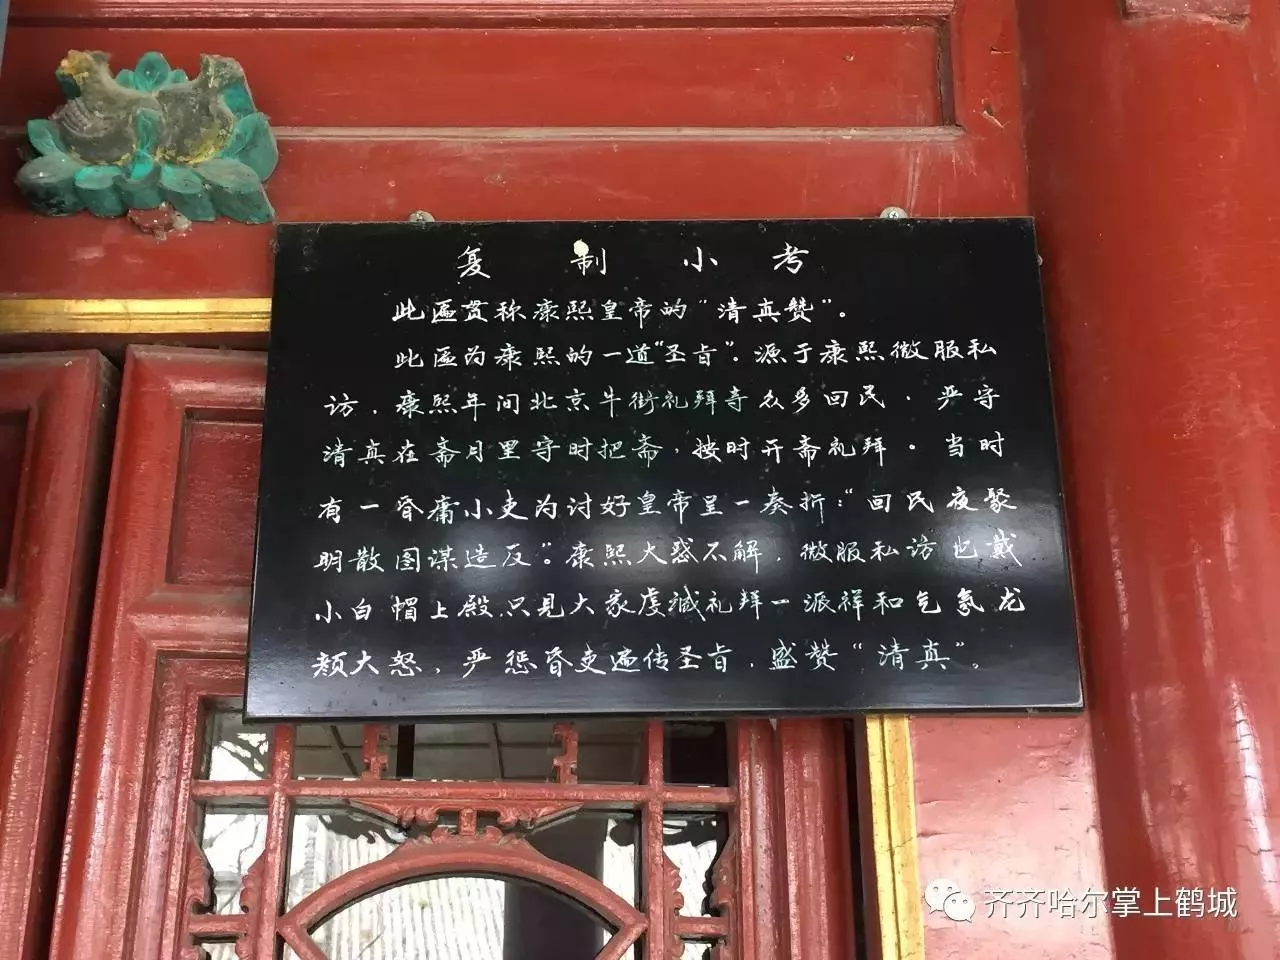 复制小考
此匾贯称康熙皇帝的“清真赞”。
此匾为康熙的一道“圣旨”。源于康熙微服私
访，康熙年间北京牛街礼拜寺众多回民，严守
清真在斋月里守时把斋，按时开斋礼拜。当时
有一昏庸小吏为讨好皇帝呈一奏折：“回民夜聚
明散图谋造反”。康熙大惑不解，微服私访也戴
小白帽上殿，只见大家虔诚礼拜一派祥和气氛龙
颜大怒，严惩昏吏遍传圣旨，盛赞“清真”。
齐齐哈尔掌上鹤城